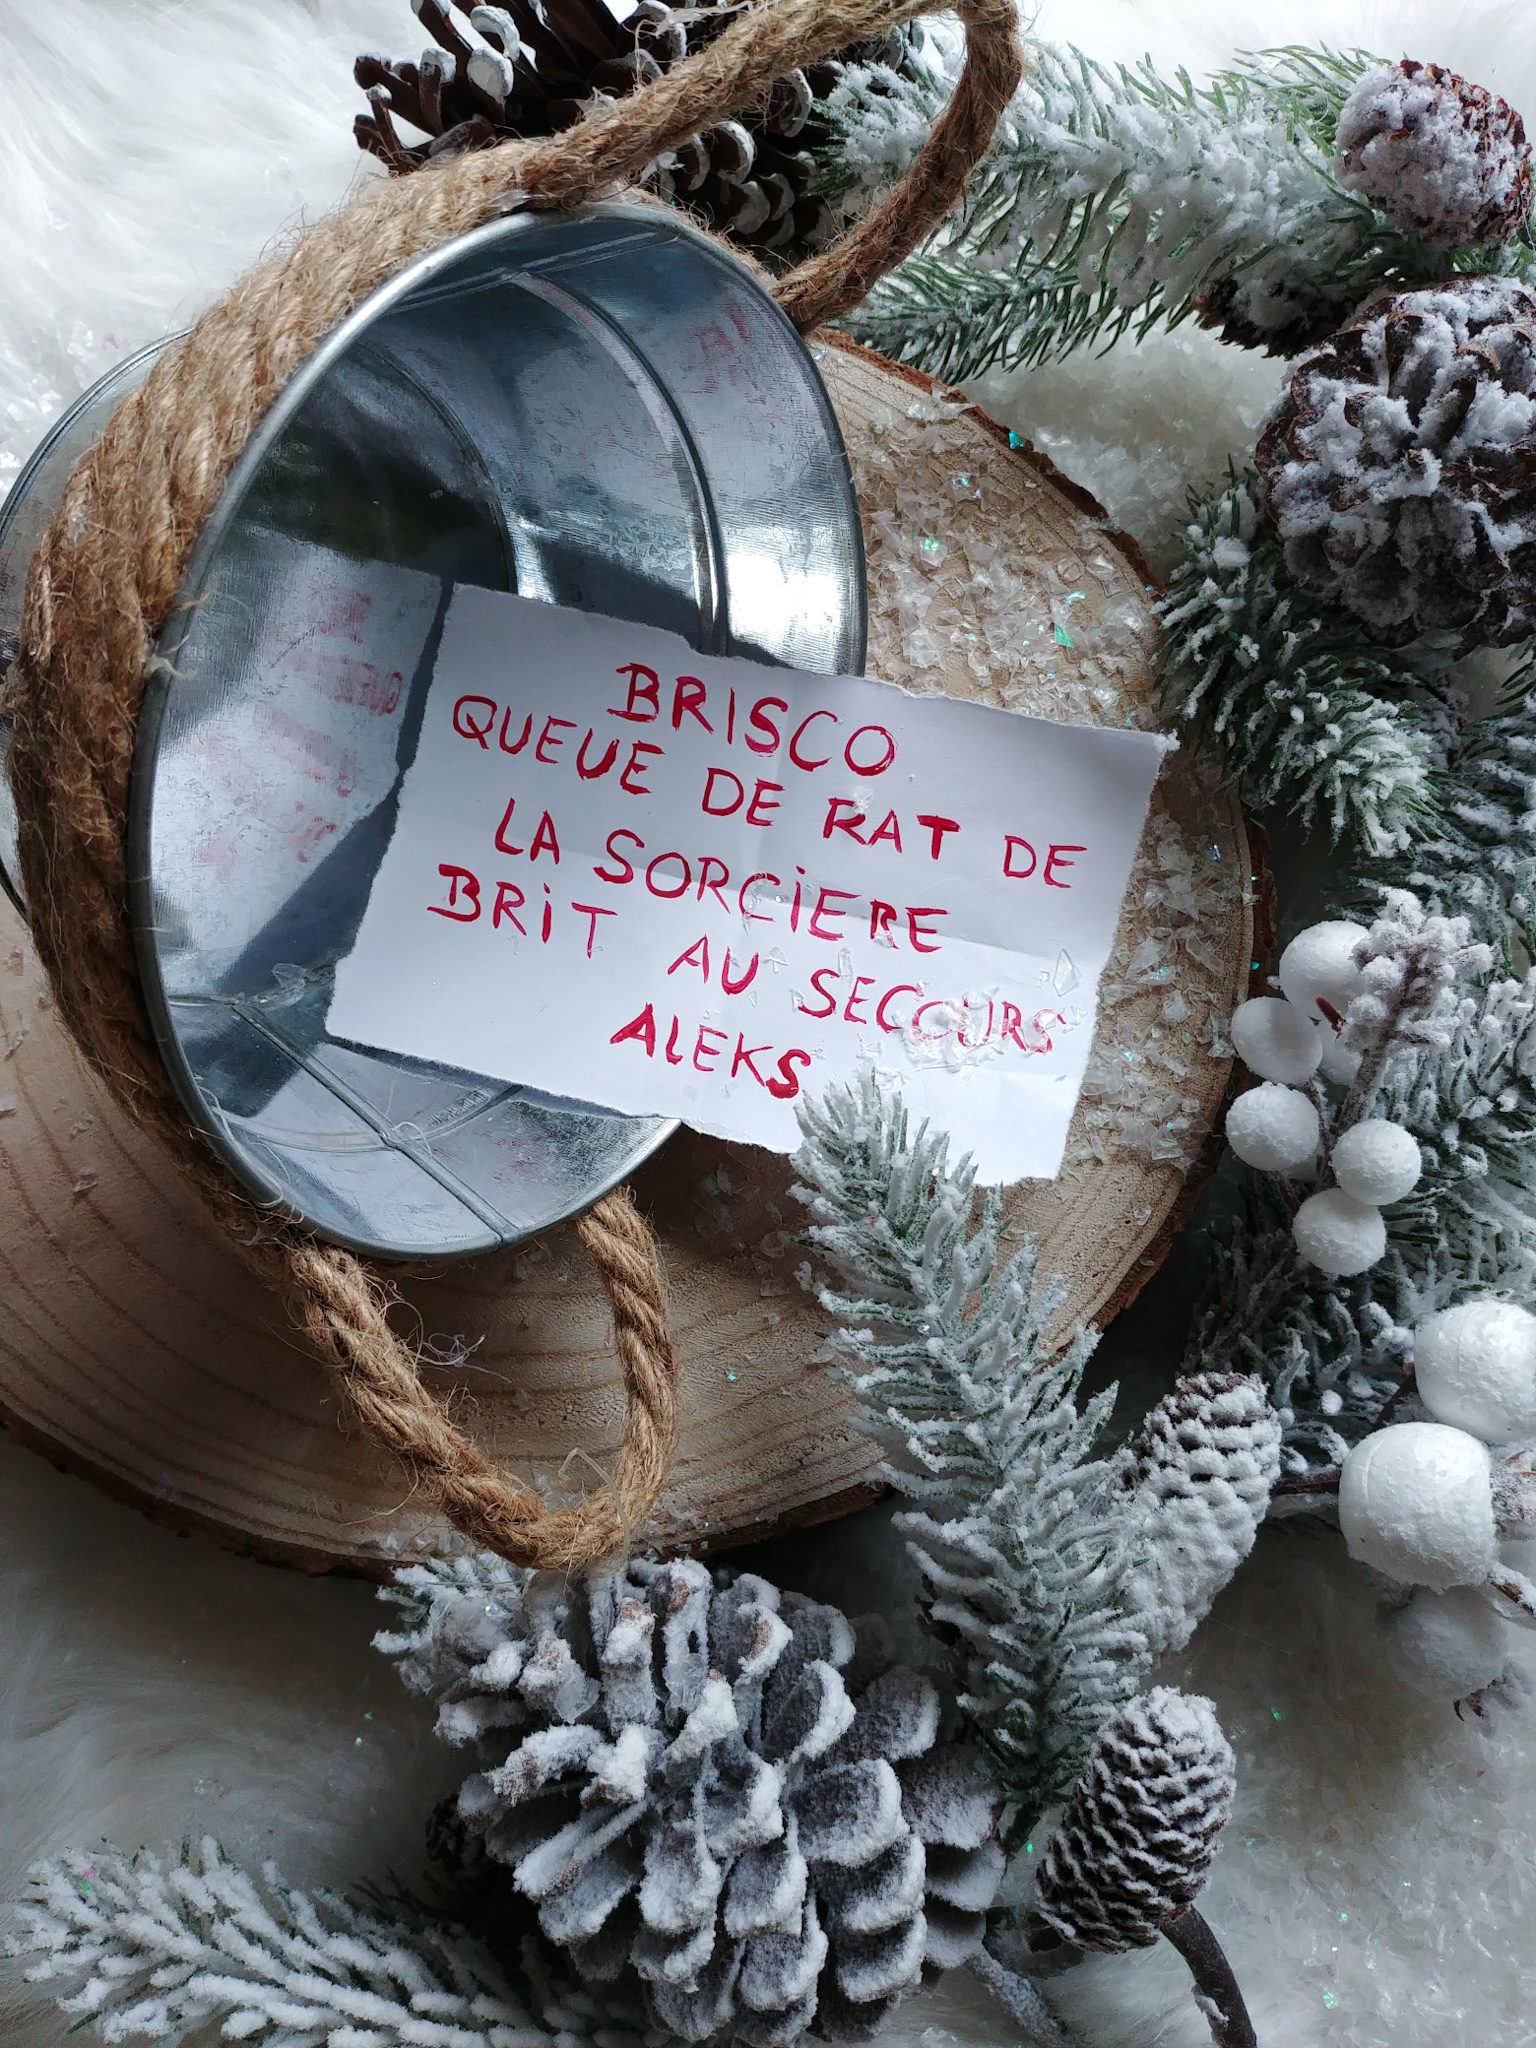 BRISCO
QUEUE DE RAT DE
LA SORCiERE
BRiT AU SECOURS
ALEKS